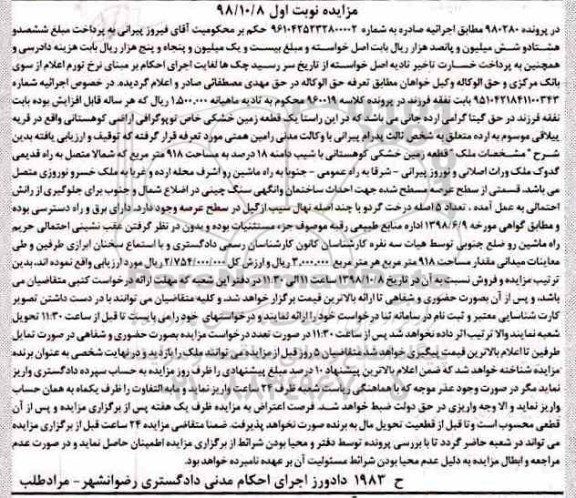 مزایده نوبت اول ۹۸/۱۰/۸
در پرونده ۹۸۰۲۸۰ مطابق اجرائیه صادره به شماره ۹۶۱۰۴۲۵۲۳۳۲۸۰۰۰۰۲ حکم بر محکومیت آقای فیروز پیرانی به پرداخت مبلغ ششصدو
هشتادو شش میلیون و پانصد هزار ریال بابت اصل خواسته و مبلغ بیست و یک میلیون و پنجاه و پنج هزار ریال بابت هزینه دادرسی و
همچنین به پرداخت خسارت تاخیر تادیه اصل خواسته از تاریخ سر رسید چک ها لغایت اجرای احکام بر مبنای نرخ تورم اعلام از سوی
بانک مرکزی و حق الوکاله وکیل خواهان مطابق تعرفه حق الوکاله در حق مهدی مصطفائی صادر و اعلام گردیده. در خصوص اجرائیه شماره
۹۵۱۰۴۲۱۸۴۱۱۰۰۳۴۳ بابت نفقه فرزند در پرونده کلاسه ۹۶۰۰۱۹ محکوم به تادیه ماهیانه ۱.۵۰۰.۰۰۰ ریال که هر ساله قابل افزایش بوده بابت
نفقه فرزند در حق گیتا گرامی ارده جانی می باشد که در این راستا یک قطعه زمین خشکی خاص توپوگرافی اراضی کوهستانی واقع در قریه
ییلاقی موسوم به ارده متعلق به شخص ثالث پدرام پیرانی با وکالت مدنی رامین همتی مورد تعرفه قرار گرفته که توقیف و ارزیابی یافته بدین
شرح " مشخصات ملک " قطعه زمین خشکی کوهستانی با شیب دامنه ۱۸ درصد به مساحت ۹۱۸ متر مربع که شمالا متصل به راه قدیمی
گدوک ملک وراث اصلانی و نوروز پیرانی – شرقا به راه عمومی – جنوبا به راه ماشین رو اشرف محله ارده و غربا به ملک خسرو نوروزی متصل
می باشد. قسمتی از سطح عرصه مسطح شده جهت احداث ساختمان وانگهی سنگ چینی در اضلاع شمال و جنوب برای جلوگیری از رانش
احتمالی به عمل آمده . تعداد ۵ اصله درخت گردو یا چند اصله نهال سیب ازگیل در سطح عرصه وجود دارد. دارای برق و راه دسترسی بوده
و مطابق گواهی مورخه ۱۳۹۸/۶/۹ اداره منابع طبیعی رقبه موصوف جزء مستثنیات بوده و بدون در نظر گرفتن عقب نشینی احتمالی حریم
راه ماشین رو ضلع جنوبی توسط هیات سه نفره کارشناسان کانون کارشناسان رسمی دادگستری و با استماع سخنان ابرازی طرفین و طی
معاینات میدانی مقدار مساحت ۹۱۸ متر مربع هر متر مربع ۳.۰۰۰.۰۰۰ ریال و ارزش کل ۲/۷۵۴/۰۰۰/۰۰۰ ریال مورد ارزیابی واقع نموده اند، بدین
ترتیب مزایده و فروش نسبت به آن در تاریخ ۱۳۹۸/۱۰/۸ ساعت ۱۱ الی ۱۱:۳۰ در دفتر این شعبه که مهلت ارائه درخواست کتبی متقاضیان می
باشد، و پس از آن بصورت حضوری و شفاهی تا ارائه بالاترین قیمت برگزار خواهد شد. و کلیه متقاضیان می توانند با در دست داشتن تصویر
کارت شناسایی معتبر و ثبت نام در سامانه ثنا درخواست خود را ارائه نمایند و درخواستهای خود را می بایست تا قبل از ساعت ۱۱:۳۰ تحویل
شعبه نمایند والا ترتیب اثر داده نخواهد شد پس از ساعت ۱۱:۳۰ در صورت تعدد درخواست مزایده بصورت حضوری و شفاهی در صورت تمایل
طرفین تا اعلام بالاترین قیمت پیگیری خواهد شد متقاضیان ۵ روز قبل از مزایده می توانند ملک را بازدید و در نهایت شخصی به عنوان برنده
مزایده شناخته خواهد شد که ضمن اعلام بالاترین پیشنهاد ۱۰ درصد مبلغ پیشنهادی را ظرف روز مزایده به حساب سپرده دادگستری واریز
نماید مگر در صورت وجود عذر موجه که با هماهنگی ریاست شعبه ظرف ۲۴ ساعت واریز نماید و مابه التفاوت را ظرف یکماه به همان حساب
واریز نماید و الا وجه واریزی در حق دولت ضبط خواهد شد. فرصت اعتراض به مزایده ظرف یک هفته پس از برگزاری مزایده و پس از آن
قطعی محسوب است و تا قبل از قطعیت تحویل مال به برنده صورت نخواهد پذیرفت. ضمنا متقاضی مزایده ۲۴ ساعت قبل از برگزاری مزایده
می تواند در شعبه حاضر گردد تا با بررسی پرونده توسط دفتر و محیا بودن شرائط از برگزاری مزایده اطمینان حاصل نماید و در صورت عدم
مراجعه و ابطال مزایده به دلیل عدم محیا بودن شرائط مسئولیت آن بر عهده نامبرده خواهد بود.
ح ۱۹۸۳ دادورز اجرای احکام مدنی دادگستری رضوانشهر– مرادطلب